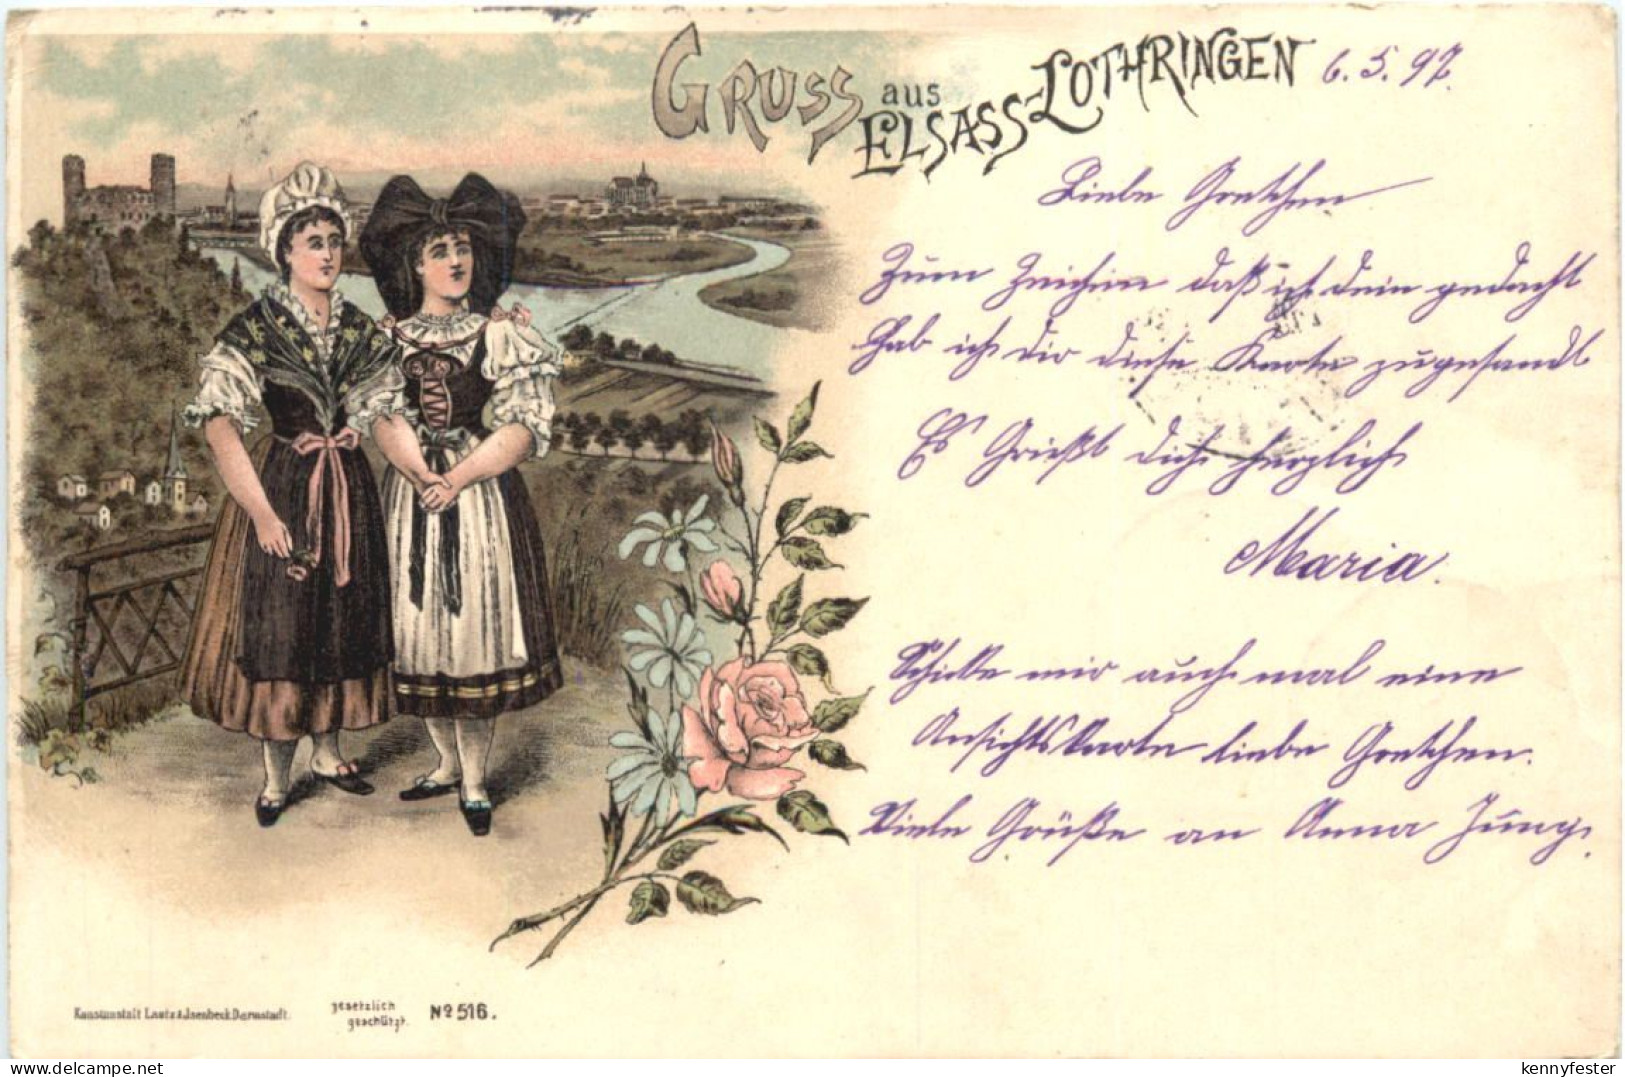 Gruss aus
Elsass-Lothringen 6.5.97.
Liebe Gretchen
Zum Zeichen daß ich dein gedacht
hab ich dir diese Karte zugesandt
Es Grüßt dich herzlich
Maria.
Schicke mir auch mal eine
Ansichtskarte liebe Gretchen.
Viele Grüße an Anna Jung.
Kunstanstalt Lautz & Jsenbeck Darmstadt.
gesetzlich
geschützt.
No 516.
delcampe.net
kennyfester